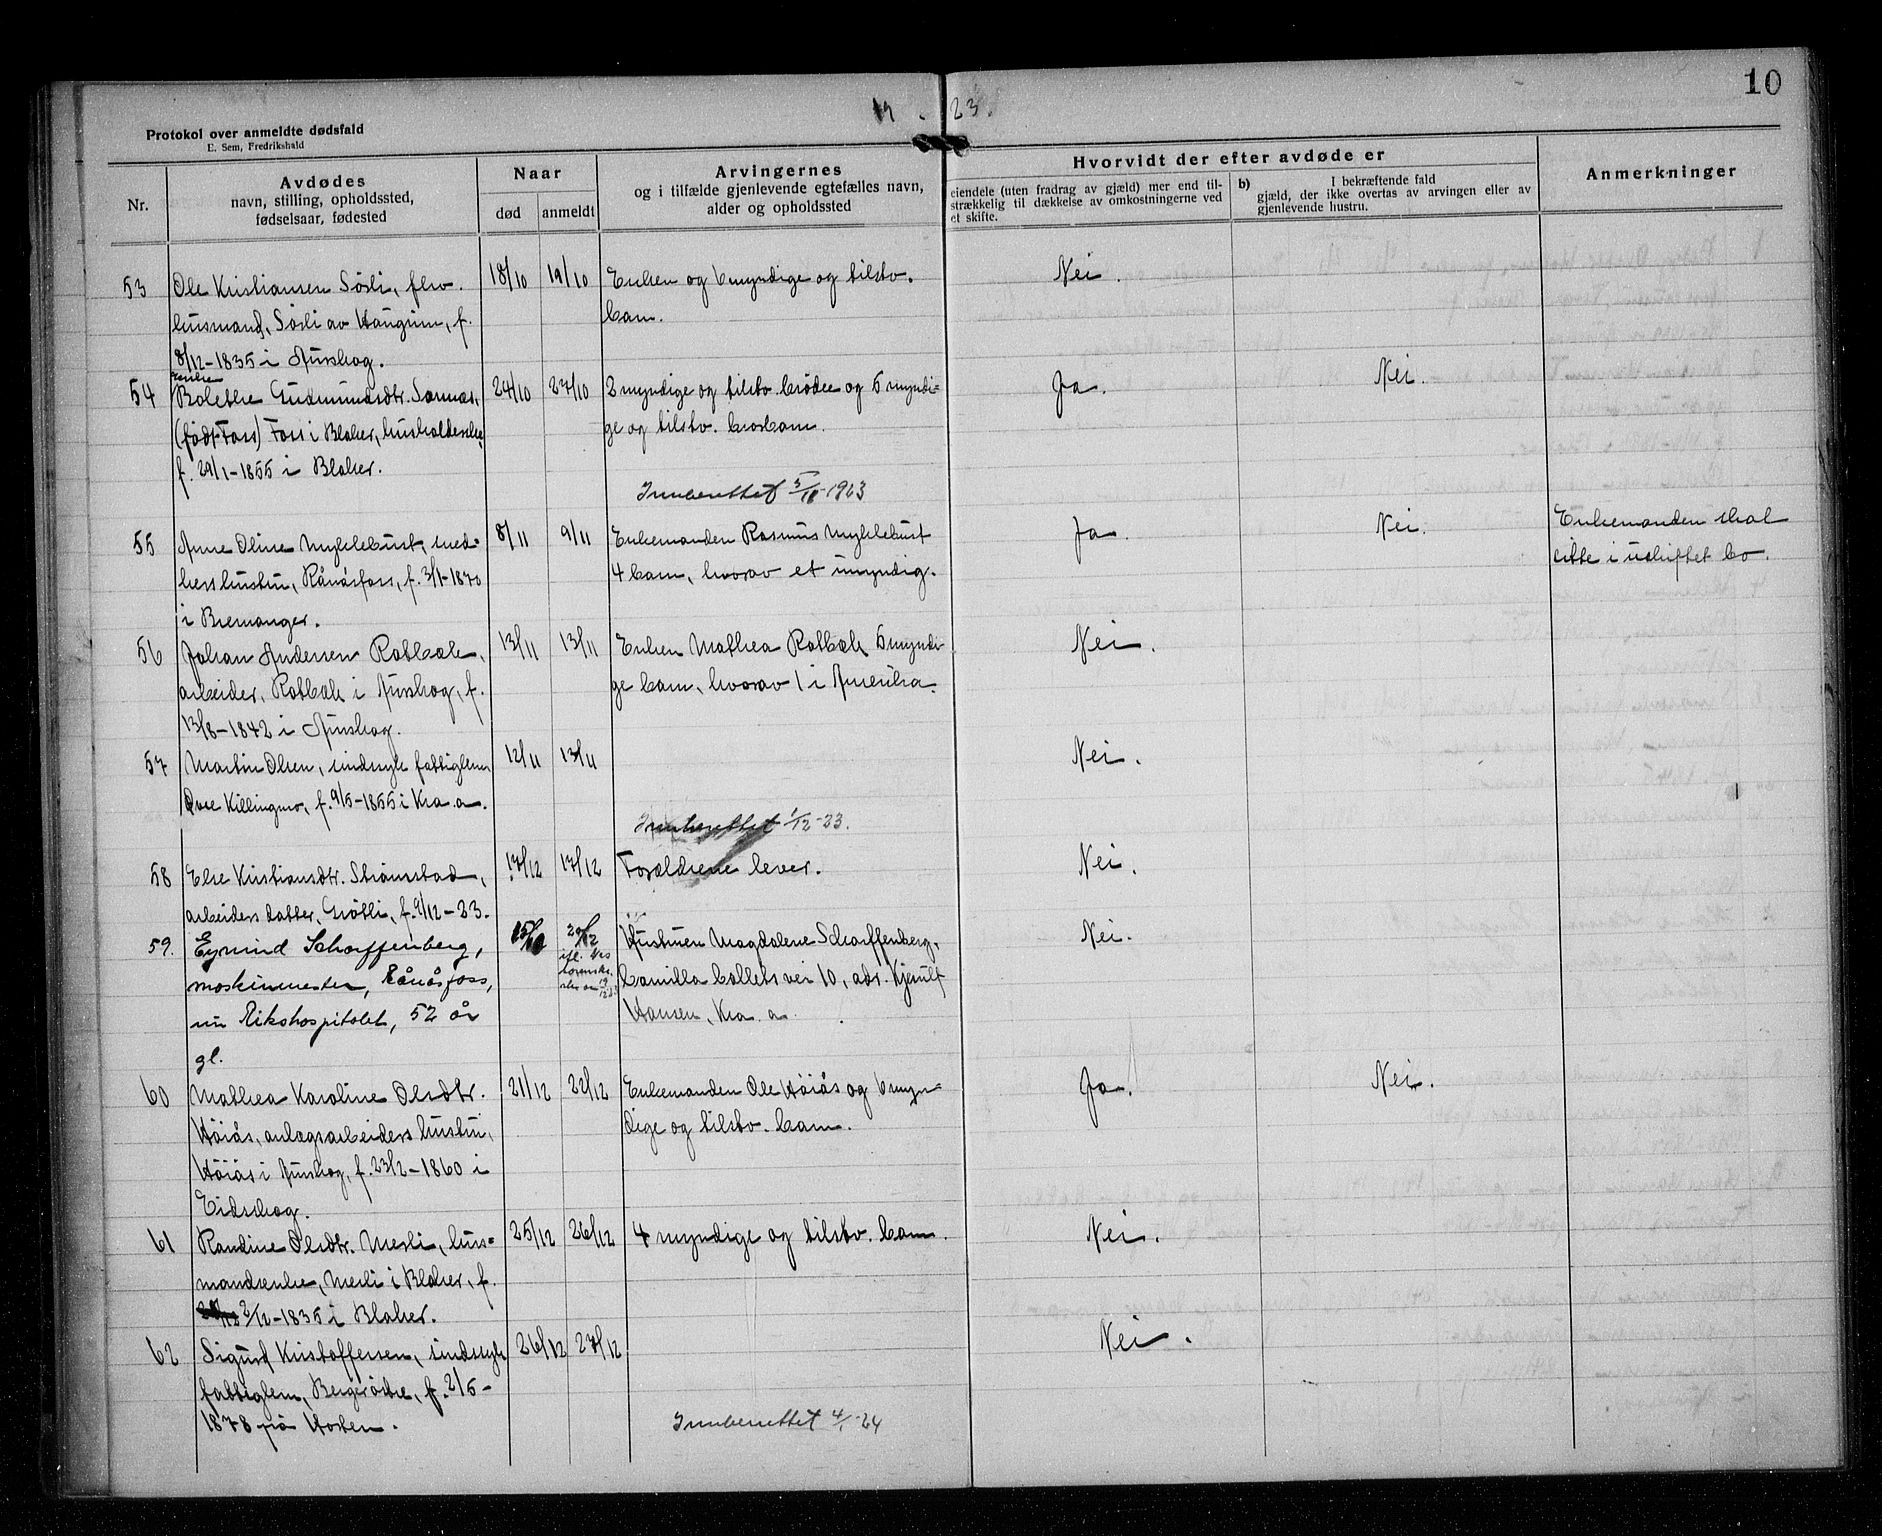 10
19 . 23.
Protokol over anmeldte dødsfald
E. Sem, Fredrikshald
Nr.
Avdødes
navn, stilling, opholdssted,
fødselsaar, fødested
Naar
død
anmeldt
Arvingernes
og i tilfælde gjenlevende egtefælles navn,
alder og opholdssted
Hvorvidt der efter avdøde er
eiendele (uten fradrag av gjæld) mer end til-
strækkelig til dækkelse av omkostningerne ved
et skifte.
b) I bekræftende fald
gjæld, der ikke overtas av arvingen eller av
gjenlevende hustru.
Anmerkninger
53 Ole Kristiansen Søsli, flv. 18/10 19/10 Enken og 6 myndige og tilstv. Nei.
husmand, Søsli av Haugrim, f. barn.
8/12-1835 i Aurskog.
Enke
54 Bolethe Gudmundsdtr. Sornes, 24/10 27/10 2 myndige og tilstv. brødre og 5 myndi= Ja. Nei.
(født Foss) Foss i Blaker, husholderske, ge og tilstv. brorbarn.
f. 29/1-1855 i Blaker.
Innberettet 5/11-1923
55 Anne Oline Myklebust, smed= 8/11 9/11 Enkemanden Rasmus Myklebust Ja. Nei. Enkemanden skal
hers hustru, Rånåsfoss, f. 3/1-1870 4 barn, hvorav et umyndig. sitte i uskiftet bo.
i Bremanger.
56 Johan Andersen Rotbæk, 13/11 13/11 Enken Mathea Rotbæk 5 myndi= Nei.
arbeider, Rotbæk i Aurskog, f. ge barn, hvorav 1 i Amerika.
13/8-1842 i Aurskog.
57 Martin Olsen, sindssyk fattiglem 12/11 13/11 Nei.
Øvre Killingmo, f. 9/5-1855 i Kra.a.
Innberettet 1/12-23.
58 Else Kristiansdtr. Strømstad, 17/12 17/12 Forældrene lever. Nei.
arbeiders datter, Grøtli, f. 9/12-23.
59. Eyvind Scharffenberg, 15/12 20/12 Hustruen Magdalene Scharffenberg, Nei.
maskinmester, Rånåsfoss, Camilla Colletts vei 10, adr. Kjerulf
nu Rikshospitalet, 52 år Hansen, Kra.a.
gl.
60 Mathea Karoline Olsdtr. 21/12 22/12 Enkemanden Ole Høiås og 6 myn= Ja. Nei.
Høiås, anlægsarbeiders hustru, dige og tilstv. barn.
Høiås i Aurskog, f. 23/2-1860 i
Eidskog.
61 Randine Olsdtr. Mesli, hus= 25/12 26/12 4 myndige og tilstv. barn. Nei.
mandsenke, Mesli i Blaker, f.
2/12-1835 i Blaker.
62 Sigurd Kristoffersen, sindssyk 26/12 27/12 Nei.
fattiglem, Berger østre, f. 2/5-
1878 på Hosten.
Innberettet 4/1-24